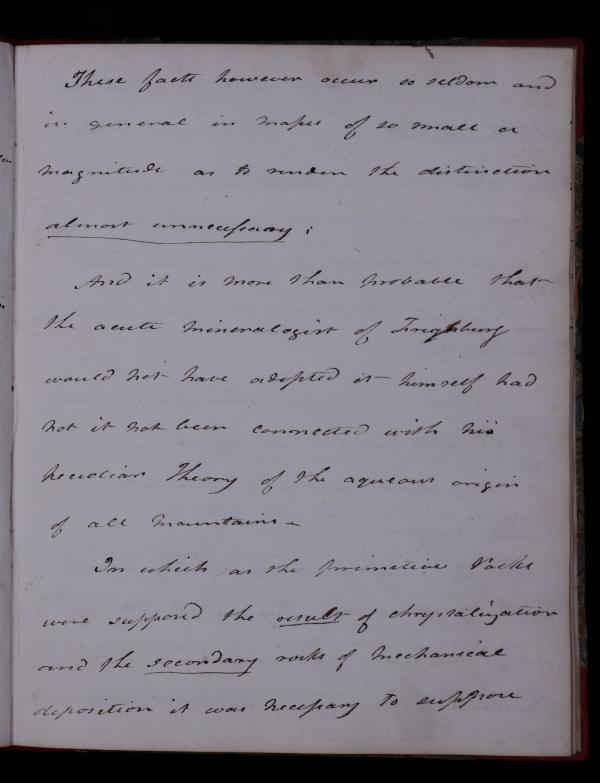 These facts however occur so seldom and
in general in masses of so small a
magnitude as to render the distinction
almost unnecessary;
And it is more than probable that
the acute mineralogist of Freyburg
would not have adopted it himself had
not it not been connected with his
peculiar Theory of the aqueous origin
of all mountains -
In which as the primitive rocks
were supposed the result of chrystalization
and the secondary rocks of mechanical
deposition it was necessary to suppose